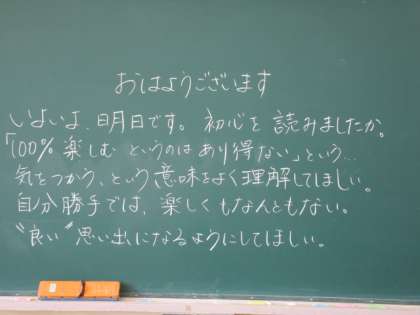 おはようございます
いよいよ、明日です。初心を読みましたか。
「100% 楽しむ というのは あり得ない」という…
気をつかう、という意味をよく理解してほしい。
自分勝手では、楽しくもなんともない。
"良い"思い出になるようにしてほしい。